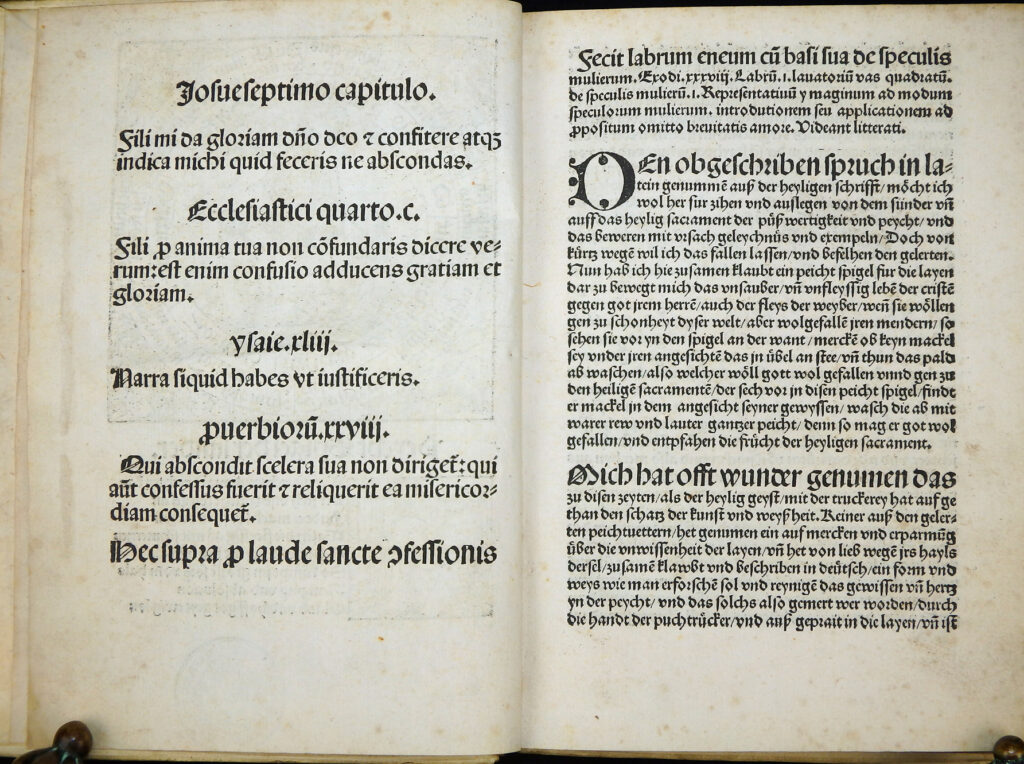 Josue septimo capitulo.
Fili mi da gloriam dño dco ⁊ confitere atqꝫ
indica michi quid feceris ne abscondas.
Ecclesiastici quarto.c.
Fili ꝓ anima tua non cõfundaris dicere ve⸗
rum:est enim confusio adducens gratiam et
gloriam.
ysaie.xliij.
Narra siquid habes vt iustificeris.
ꝓuerbiorũ.xxviij.
Qui abscondit scelera sua non diriget̃:qui
aũt confessus fuerit ⁊ reliquerit ea misericor⸗
diam consequet̃.
Hec supra ꝓ laude sancte ꝯfessionis
Fecit labrum eneum cũ basi sua de speculis
mulierum.Exodi.xxxviij.Labrũ.i.lauatoriũ vas quadratũ.
de speculis mulierũ.i.Representatiuũ y maginum ad modum
speculorum mulierum. introdutionem seu applicationem ad
ꝓpositum omitto breuitatis amore. Videant litterati.
DEn obgeschriben spruch in la⸗
tein genummẽ auß der heyligen schrifft/ mõcht ich
wol her für zihen und auslegen von dem sünder vñ
auff das heylig sacrament der půß wertigkeit vnd peycht/ vnd
das beweren mit vrsach geleychnůs vnd exempeln/ Doch von
kürtz wegẽ wil ich das fallen lassen/vnd befelhen den gelerten.
Nun hab ich hie zusamen klaubt ein peicht spigel für die layen
dar zu bewegt mich das vnsauber/ vñ vnfleyssig lebẽ der cristẽ
gegen got jrem herrẽ/auch der fleys der weyber/ weñ sie wõllen
gen zu schonheyt dyser welt/ aber wolgefallẽ jren mendern/ so
sehen sie vor yn den spigel an der want/ merckẽ ob keyn mackel
sey vnder jren angesichtẽ das in übel an stee/ vñ thun das pald
ab waschen/ also welcher wõll gott wol gefallen vnnd gen zu
den heiligẽ sacramentẽ/ der sech vor in disen peicht spigel/ findt
er mackel in dem angesicht seyner gewyssen/ wasch die ab mit
warer rew vnd lauter gantzer peicht/ denn so mag er got wol
gefallen/ vnd entpfahen die frücht der heyligen sacrament.
Mich hat offt wunder genumen das
zu disen zeyten/ als der heylig geyst/ mit der truckerey hat auf ge
than den schatz der kunst vnd weyßheit. Keiner auß den geler⸗
ten peichtuettern/ het genumen ein auf mercken vnd erparmũg
über die vnwissenheit der layen/ vñ het von lieb wegẽ jrs hayls
dersel/ zusamẽ klawbt vnd beschriben in deütsch/ ein form vnd
weys wie man erforschẽ sol vnd reynigẽ das gewissen vñ hertz
yn der peycht/ vnd das solchs also gemert wer worden/ durch
die handt der puchtrücker/ vnd auß geprait in die layen/ vñ ist